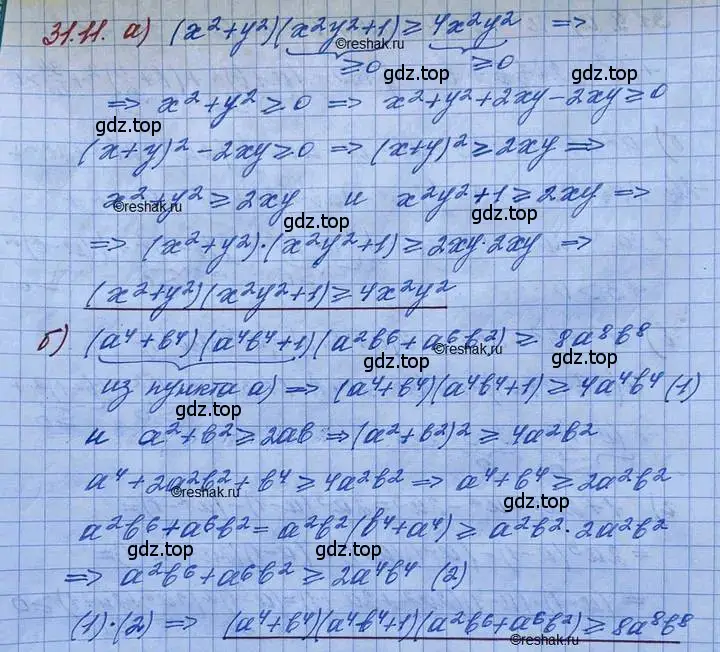 31.11. а) (x²+y²)(x²y²+1) ≥ 4x²y² ⇒
©reshak.ru
≥0 ≥0
gdz.top gdz.top
⇒ x²+y² ≥ 0 ⇒ x²+y²+2xy−2xy ≥ 0
gdz.top
(x+y)² − 2xy ≥ 0 ⇒ (x+y)² ≥ 2xy ⇒
gdz.top gdz.top
x²+y² ≥ 2xy и x²y²+1 ≥ 2xy ⇒
©reshak.ru ©reshak.ru
gdz.top
⇒ (x²+y²)·(x²y²+1) ≥ 2xy·2xy ⇒
gdz.top gdz.top
(x²+y²)(x²y²+1) ≥ 4x²y²
©reshak.ru
б) (a⁴+b⁴)(a⁴b⁴+1)(a²b⁶+a⁶b²) ≥ 8a⁸b⁸
gdz.top gdz.top
из пункта а) ⇒ (a⁴+b⁴)(a⁴b⁴+1) ≥ 4a⁴b⁴ (1)
и a²+b² ≥ 2ab ⇒ (a²+b²)² ≥ 4a²b²
gdz.top
a⁴+2a²b²+b⁴ ≥ 4a²b² ⇒ a⁴+b⁴ ≥ 2a²b²
©reshak.ru
gdz.top
a²b⁶+a⁶b² = a²b²(b⁴+a⁴) ≥ a²b²·2a²b²
gdz.top ©reshak.ru gdz.top
⇒ a²b⁶+a⁶b² ≥ 2a⁴b⁴ (2)
gdz.top
(1)·(2) ⇒ (a⁴+b⁴)(a⁴b⁴+1)(a²b⁶+a⁶b²) ≥ 8a⁸b⁸
gdz.top ©reshak.ru